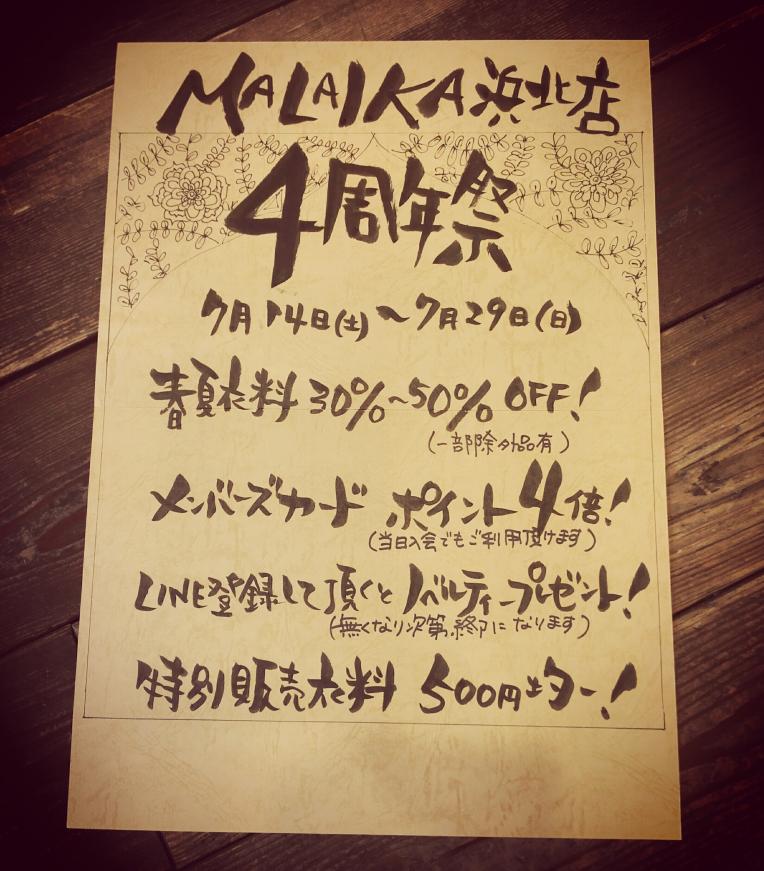 MALAIKA浜北店
4周年祭
7月14日(土)〜7月29日(日)
春夏衣料 30%〜50% OFF!
(一部除外品有)
メンバーズカード ポイント4倍!
(当日入会でもご利用頂けます)
LINE登録して頂くと ノベルティープレゼント!
(無くなり次第終了になります)
特別販売衣料 500円+ター!